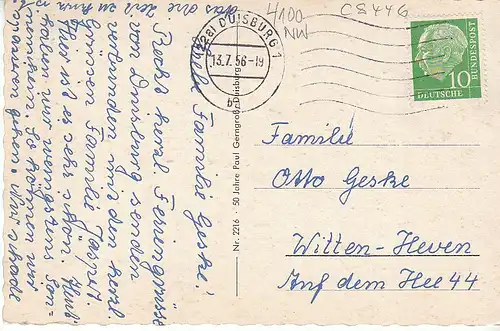 Liebe Familie Geske!
Recht herzl Feriengrüsse
von Duisburg senden
verbunden mit den herzl
Grüssen Familie Jaspert.
Hier ist es sehr schön. Heute
haben wir wenigstens Son-
nenschein. So können wir
spazieren gehen. Nur schade
das die Zeit zu kurz
Nr. 2216 · 50 Jahre Paul Gerngroß, Duisburg
DUISBURG 1
13.7.56-19
b
4100
NW
C8446
10
DEUTSCHE
BUNDESPOST
Familie
Otto Geske
Witten-Heven
Auf dem Hee 44